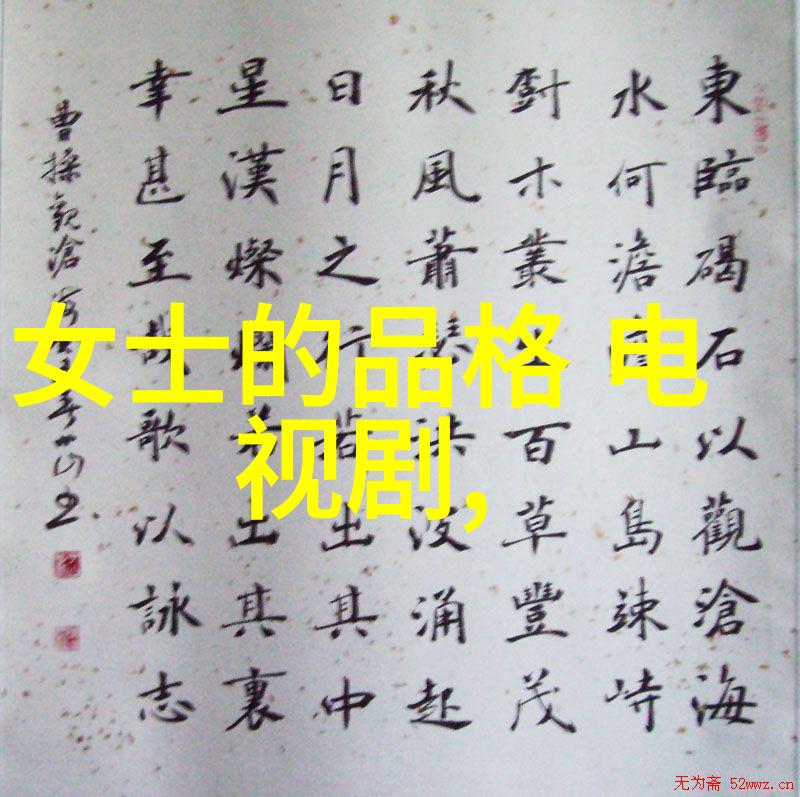 女士的品格 电
视剧,
東臨碣石以觀滄海
水何澹山島竦峙
木叢生百草豐茂
秋風蕭瑟洪波涌起
日月之行若出其中
星漢燦爛若出其裏
幸甚至哉歌以詠志
曹操觀滄海
无为斋 52wwz.cn